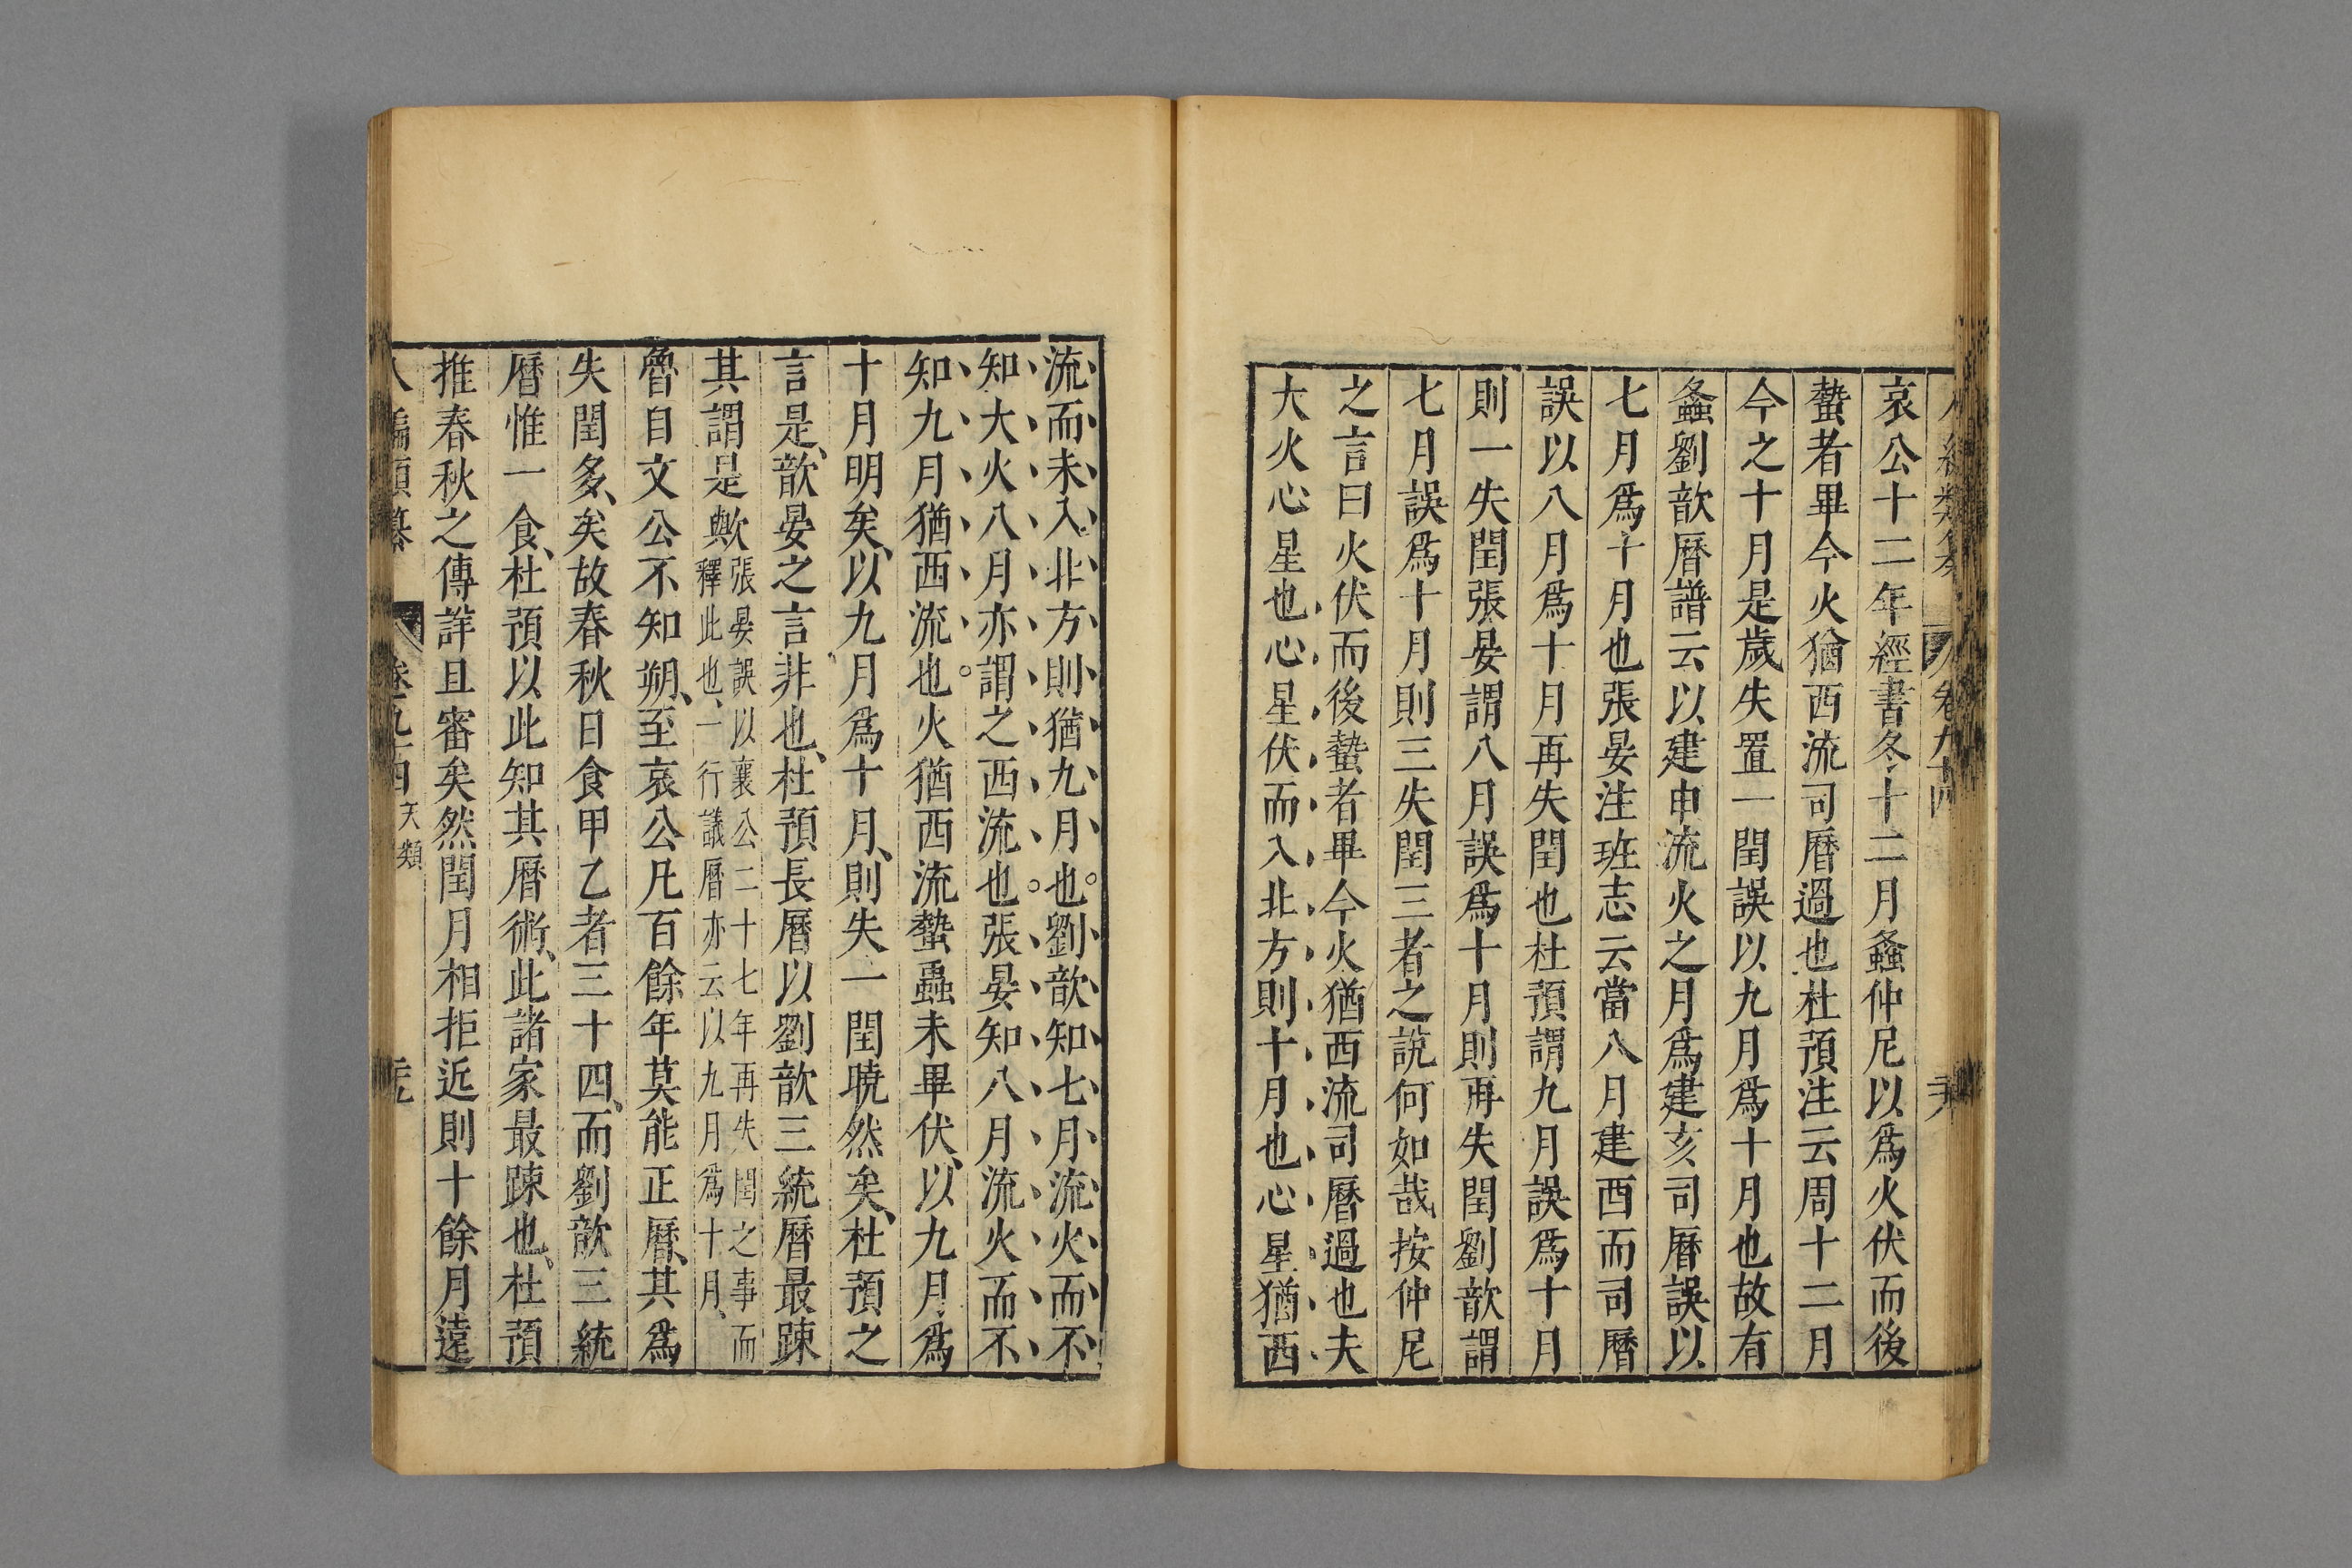 哀公十二年經書冬十二月螽仲尼以爲火伏而後
蟄者畢今火猶西流司曆過也杜預注云周十二月
今之十月是歲失置一閏誤以九月爲十月也故有
螽劉歆曆譜云以建申流火之月爲建亥司曆誤以
七月爲十月也張晏注班志云當八月建酉而司曆
誤以八月爲十月再失閏也杜預謂九月誤爲十月
則一失閏張晏謂八月誤爲十月則再失閏劉歆謂
七月誤爲十月則三失閏三者之說何如哉按仲尼
之言曰火伏而後蟄者畢今火猶西流司曆過也夫
大火心星也心星伏而入北方則十月也心星猶西
流而未入北方則猶九月也。劉歆知七月流火而不
知大火八月亦謂之西流也。張晏知八月流火而不
知九月猶西流也。火猶西流蟄蟲未畢伏、以九月爲
十月明矣、以九月爲十月、則失一閏曉然矣、杜預之
言是、歆晏之言非也、杜預長曆以劉歆三統曆最踈
其謂是歟張晏誤以襄公二十七年再失閏之事而
釋此也、一行議曆亦云以九月爲十月、
魯自文公不知朔、至哀公凡百餘年莫能正曆、其爲
失閏多、矣故春秋日食甲乙者三十四、而劉歆三統
曆惟一食、杜預以此知其曆術、此諸家最踈也、杜預
推春秋之傳詳且審矣然閏月相拒近則十餘月遠
八編類纂 卷九十四 天類